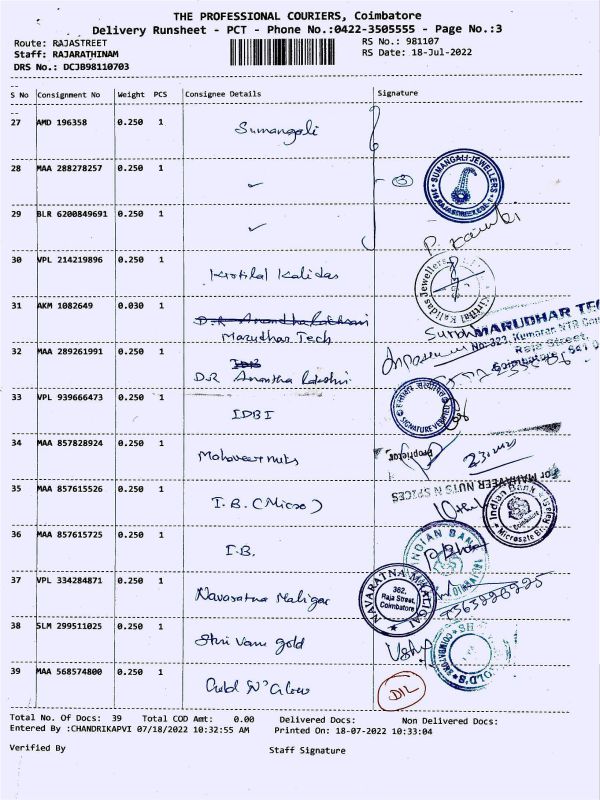 THE PROFESSIONAL COURIERS, Coimbatore
Delivery Runsheet - PCT - Phone No.:0422-3505555 - Page No.:3
Route: RAJASTREET RS No.: 981107
Staff: RAJARATHINAM RS Date: 18-Jul-2022
DRS No.: DCJB98110703
S No Consignment No Weight PCS Consignee Details Signature
27 AMD 196358 0.250 1 Sumangali
28 MAA 288278257 0.250 1 ✓ 3 SUMANGALI JEWELLERS
29 BLR 6200849691 0.250 1 ✓
30 VPL 214219896 0.250 1 Kirtilal Kalidas Kirthilal Kalidas Jewellers
31 AKM 1082649 0.030 1 D.R Anandha Lakshmi
Marudhar Tech. MARUDHAR TE
No: 323, Kumaran NTR Com
Raja Street,
Coimbatore - 641 0
32 MAA 289261991 0.250 1 IDB
D.R Anantha Lakshmi
33 VPL 939666473 0.250 1 IDBI SIGNATURE VERIFIED
34 MAA 857828924 0.250 1 Mahaveer nuts Proprietor
For MAHAVEER NUTS N SPICES
35 MAA 857615526 0.250 1 I.B. (Micro) Indian Bank Microsate Br. Coimbatore
36 MAA 857615725 0.250 1 I.B. INDIAN BANK
37 VPL 334284871 0.250 1 Navaratna Maligai NAVARATNA MALIGAI
362, Raja Street, Coimbatore
38 SLM 299511025 0.250 1 Shri Vani gold Usha
39 MAA 568574800 0.250 1 D/L
Total No. Of Docs: 39 Total COD Amt: 0.00 Delivered Docs: Non Delivered Docs:
Entered By :CHANDRIKAPVI 07/18/2022 10:32:55 AM Printed On: 18-07-2022 10:33:04
Verified By Staff Signature